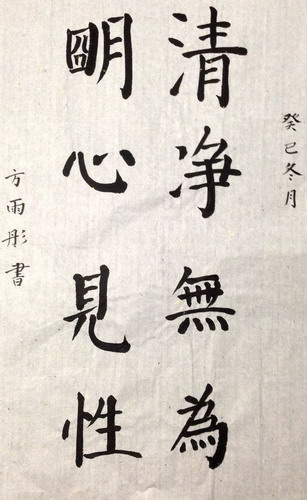 癸巳冬月
清净無為
明心見性
方雨彤書